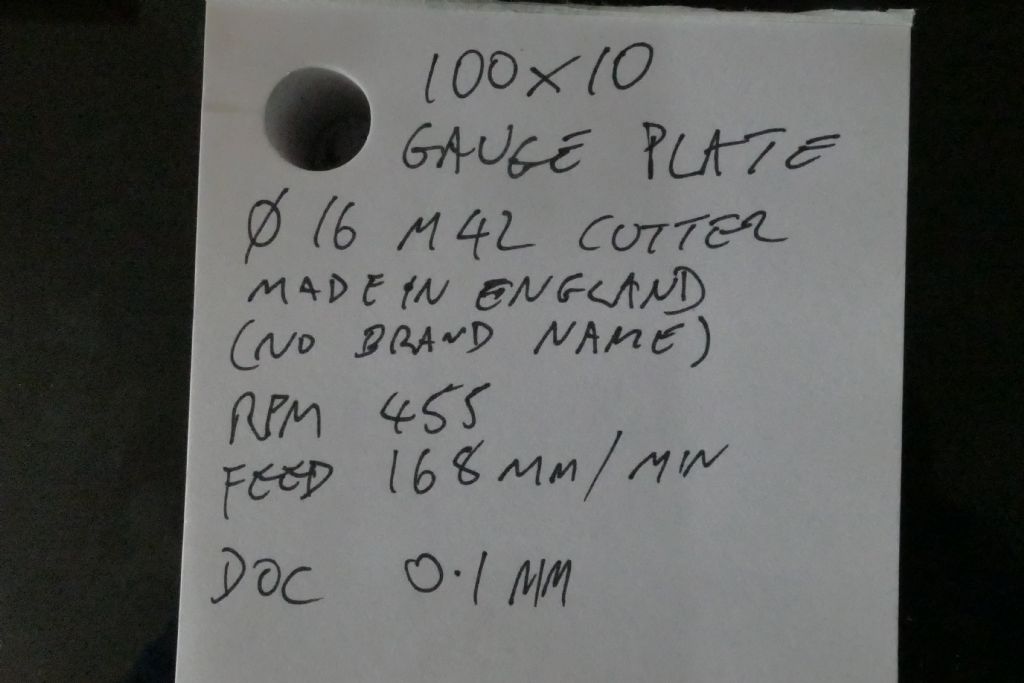 100×10
GAUGE PLATE
Ø 16 M42 CUTTER
MADE IN ENGLAND
(NO BRAND NAME)
RPM 455
FEED 168 MM/MIN
DOC 0.1 MM